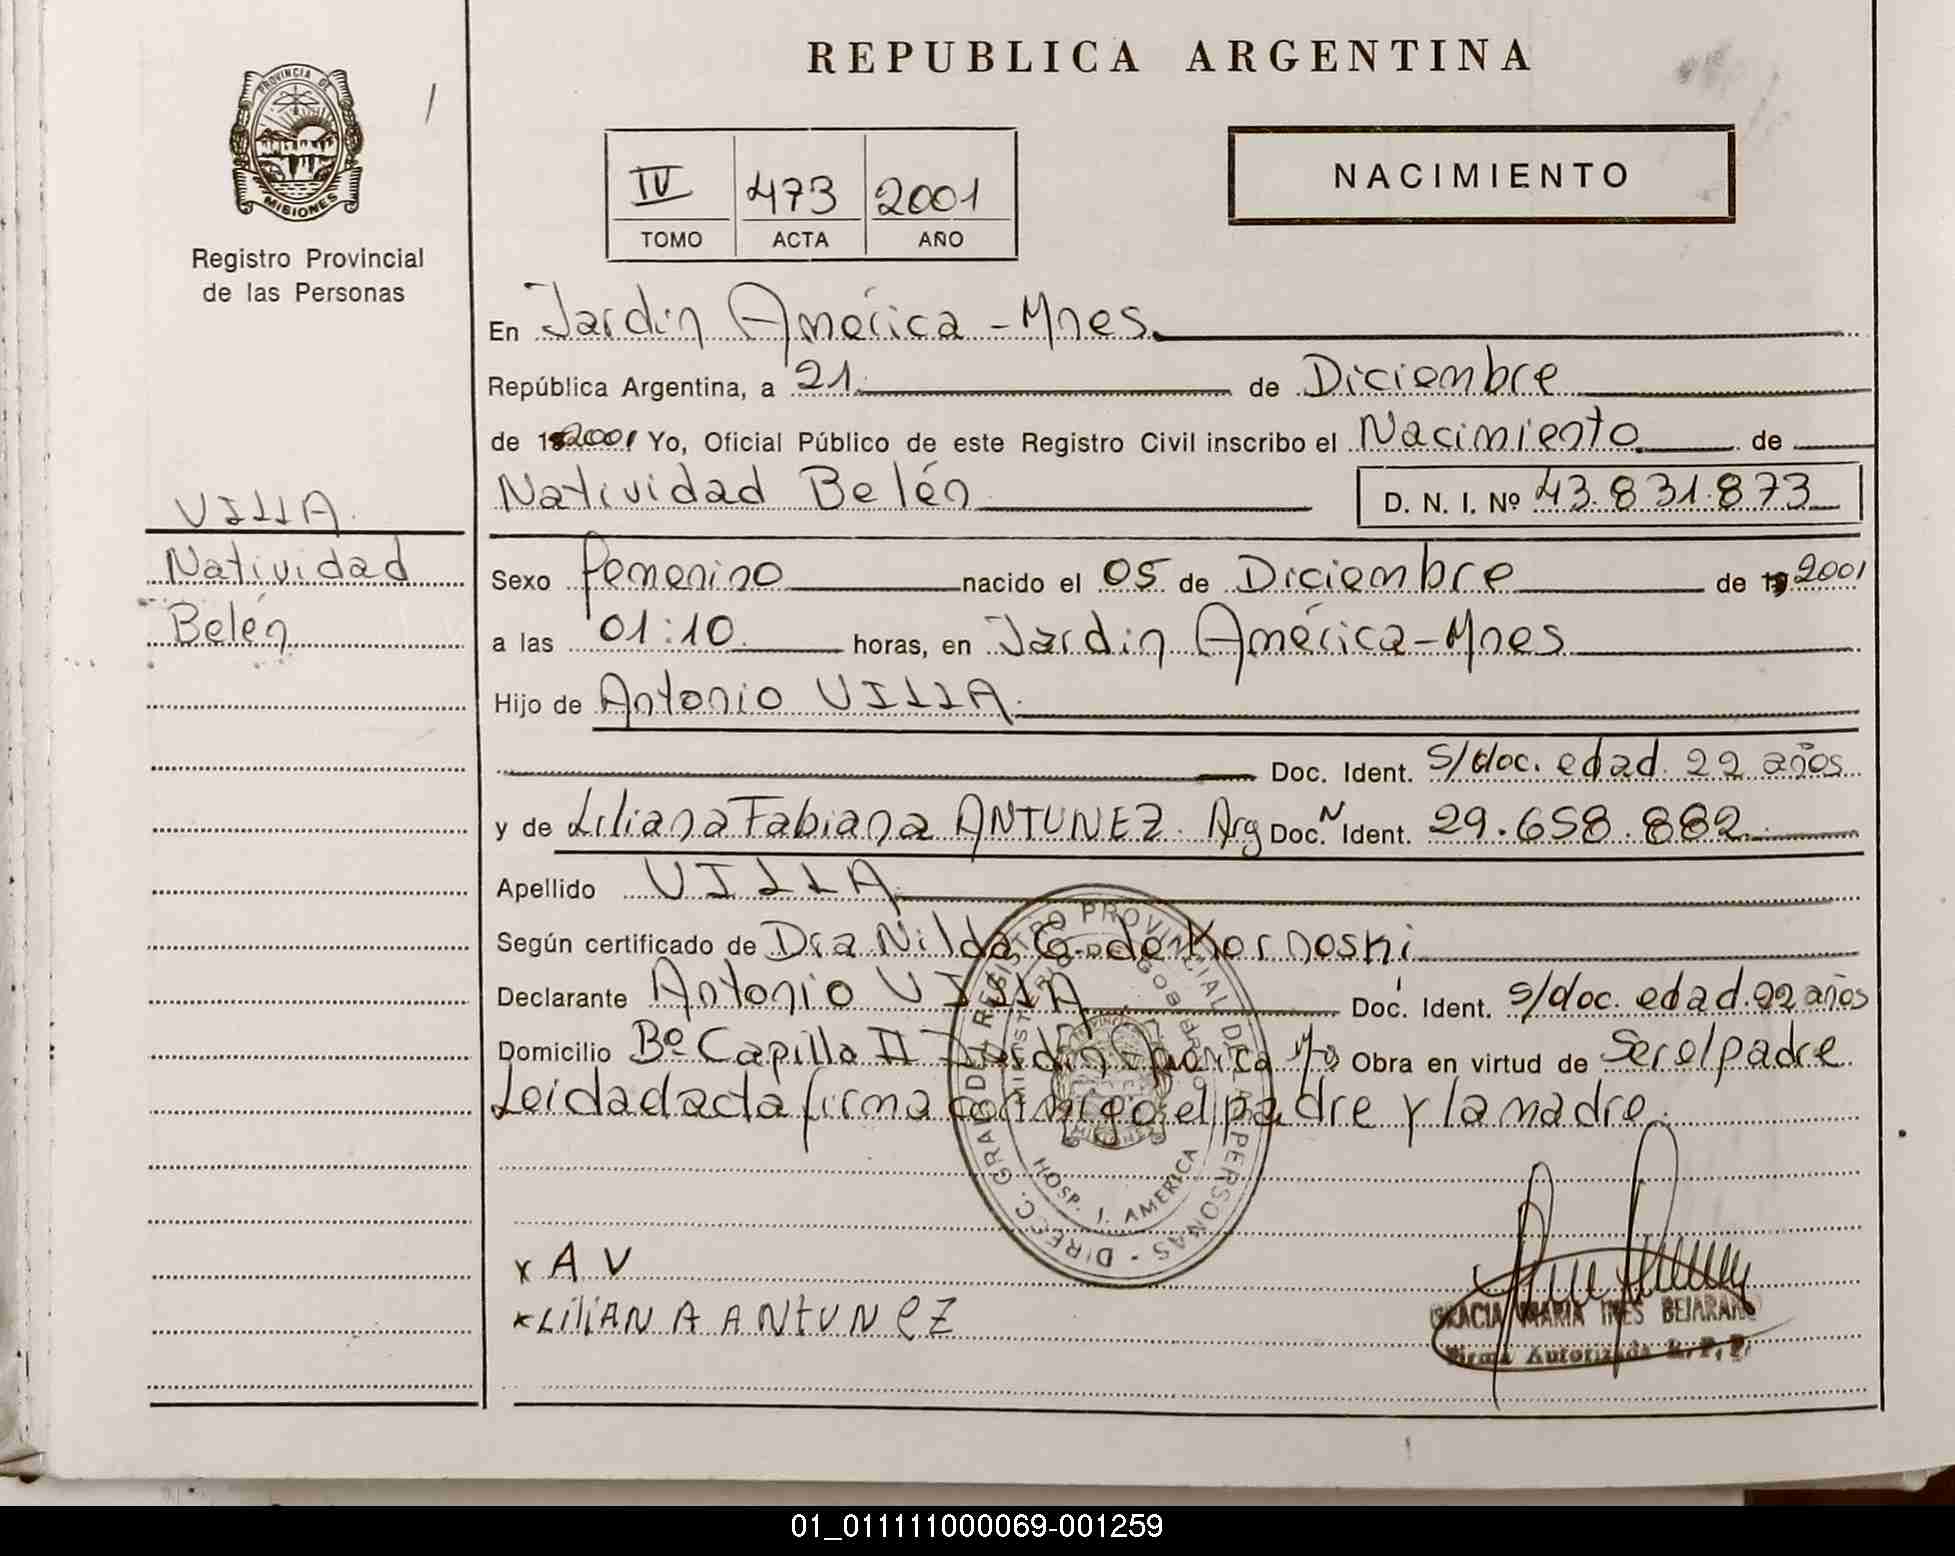 REPUBLICA ARGENTINA
PROVINCIA DE
MISIONES
Registro Provincial
de las Personas
IV 473 2001
TOMO ACTA AÑO
NACIMIENTO
En Jardín América - Mnes.
República Argentina, a 21 de Diciembre
de 2001 Yo, Oficial Público de este Registro Civil inscribo el Nacimiento de
Natividad Belén D. N. I. Nº 43.831.873
VILLA
Natividad
Belén
Sexo femenino nacido el 05 de Diciembre de 2001
a las 01:10 horas, en Jardin América - Mnes
Hijo de Antonio VILLA
Doc. Ident. S/doc. edad 22 años
y de Liliana Fabiana ANTUNEZ Arg Doc. Ident. 29.658.882
Apellido VILLA
Según certificado de Dra Nilda G. de Kornoski
Declarante Antonio VILLA Doc. Ident. s/doc. edad. 22 años
Domicilio Bº Capilla II Jardín América Obra en virtud de Ser el padre
Leida el acta firma conmigo el padre y la madre
DIRECC. GRAL. DEL REGISTRO PROVINCIAL DE LAS PERSONAS
MINISTERIO DE GOBIERNO
HOSP. J. AMERICA
x A V
x LiliANA ANtUNeZ
GRACIA MARIA INES BEJARANO
Firma Autorizada R. P. P.
01_011111000069-001259